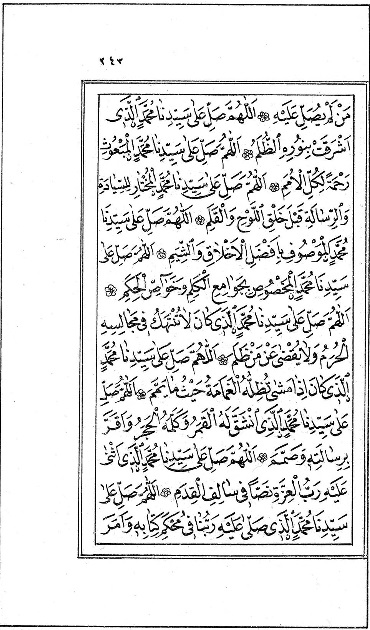 ٢٤٣
مَنْ لَمْ يُصَلِّ عَلَيْهِ ۞ اَللّٰهُمَّ صَلِّ عَلٰى سَيِّدِنَا مُحَمَّدٍ الَّذِى
اَشْرَقَتْ بِنُورِهِ الظُّلَمُ ۞ اَللّٰهُمَّ صَلِّ عَلٰى سَيِّدِنَا مُحَمَّدٍ الْمَبْعُوثِ
رَحْمَةً لِكُلِّ الْاُمَمِ ۞ اَللّٰهُمَّ صَلِّ عَلٰى سَيِّدِنَا مُحَمَّدٍ الْمُخْتَارِ لِلسِّيَادَةِ
وَالرِّسَالَةِ قَبْلَ خَلْقِ اللَّوْحِ وَالْقَلَمِ ۞ اَللّٰهُمَّ صَلِّ عَلٰى سَيِّدِنَا
مُحَمَّدٍ الْمَوْصُوفِ بِاَفْضَلِ الْاَخْلَاقِ وَالشِّيَمِ ۞ اَللّٰهُمَّ صَلِّ عَلٰى
سَيِّدِنَا مُحَمَّدٍ الْمَخْصُوصِ بِجَوَامِعِ الْكَلِمِ وَخَوَاصِّ الْحِكَمِ ۞
اَللّٰهُمَّ صَلِّ عَلٰى سَيِّدِنَا مُحَمَّدٍ الَّذِى كَانَ لَا تُنْتَهَكُ فِى مَجَالِسِهِ
الْحُرَمُ وَلَا يُغْضِى عَنْ مَنْ ظَلَمَ ۞ اَللّٰهُمَّ صَلِّ عَلٰى سَيِّدِنَا مُحَمَّدٍ
الَّذِى كَانَ اِذَا مَشٰى تُظِلُّهُ الْغَمَامَةُ حَيْثُ مَا يَمَّمَ ۞ اَللّٰهُمَّ صَلِّ
عَلٰى سَيِّدِنَا مُحَمَّدٍ الَّذِى انْشَقَّ لَهُ الْقَمَرُ وَكَلَّمَهُ الْحَجَرُ وَاَقَرَّ
بِرِسَالَتِهِ وَصَمَّمَ ۞ اَللّٰهُمَّ صَلِّ عَلٰى سَيِّدِنَا مُحَمَّدٍ الَّذِى اَثْنٰى
عَلَيْهِ رَبُّ الْعِزَّةِ نَصًّا فِى سَالِفِ الْقِدَمِ ۞ اَللّٰهُمَّ صَلِّ عَلٰى
سَيِّدِنَا مُحَمَّدٍ الَّذِى صَلّٰى عَلَيْهِ رَبُّنَا فِى مُحْكَمِ كِتَابِهِ وَاَمَرَ